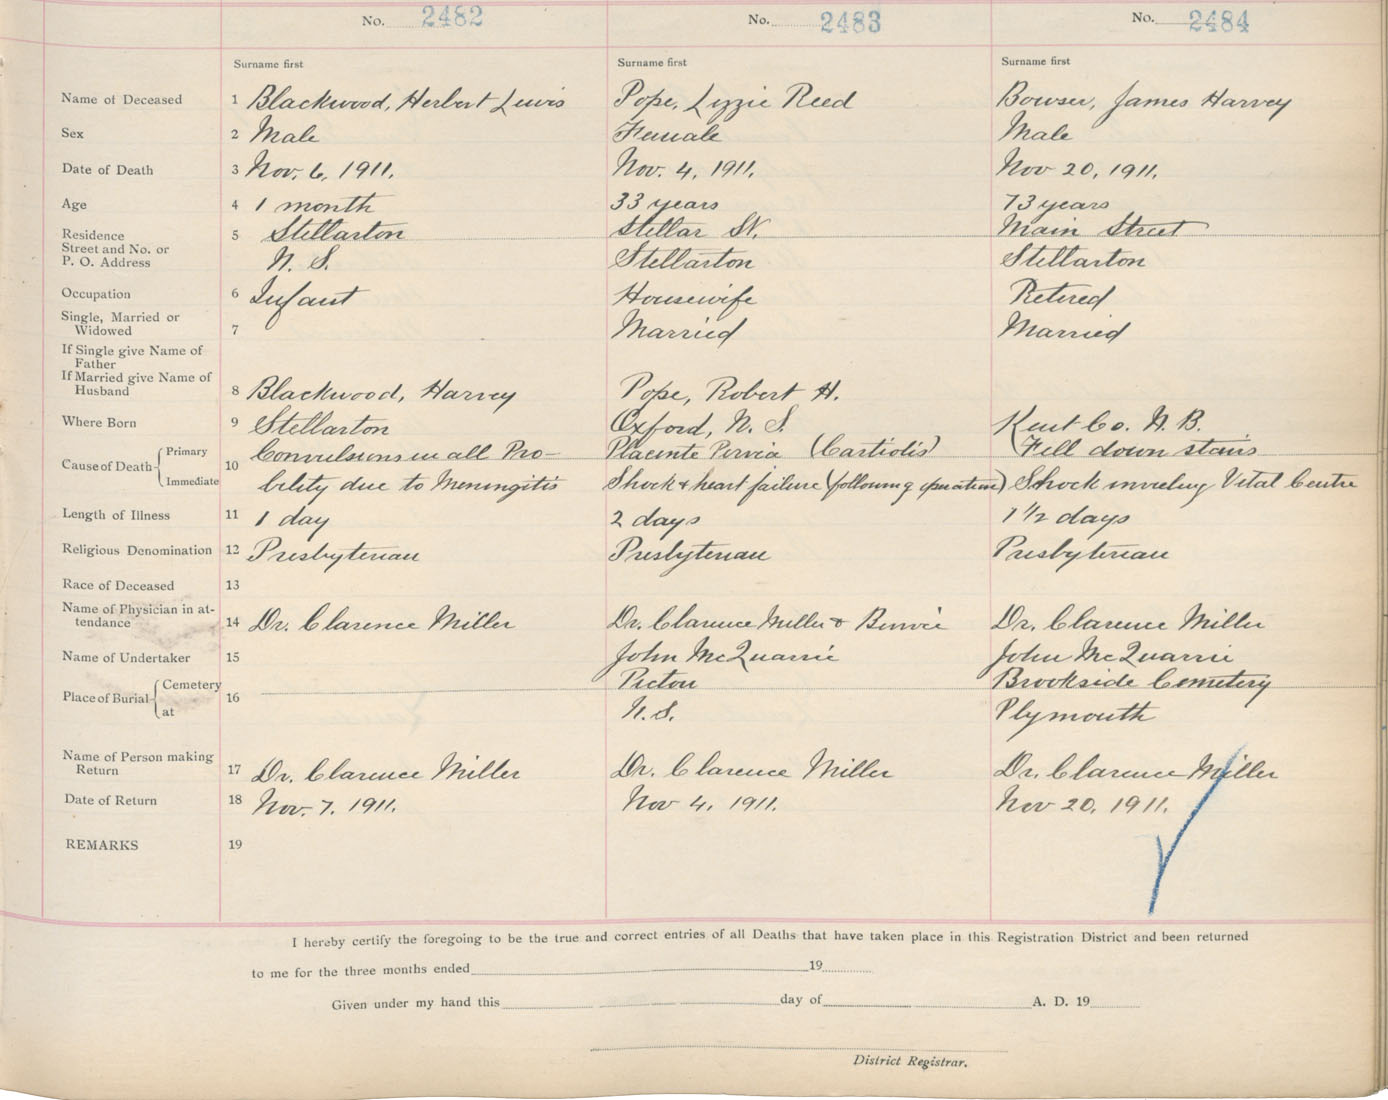 No. 2482 No. 2483 No. 2484
Surname first Surname first Surname first
Name of Deceased 1 Blackwood, Herbert Lewis Pope, Lizzie Reed Bowser, James Harvey
Sex 2 Male Female Male
Date of Death 3 Nov. 6, 1911. Nov. 4, 1911. Nov 20, 1911.
Age 4 1 month 33 years 73 years
Residence 5 Stellarton Stellar St. Main Street
Street and No. or
P. O. Address N. S. Stellarton Stellarton
Occupation 6 Infant Housewife Retired
Single, Married or
Widowed 7 Married Married
If Single give Name of
Father
If Married give Name of
Husband 8 Blackwood, Harvey Pope, Robert H.
Where Born 9 Stellarton Oxford, N. S. Kent Co. N. B.
Cause of Death Primary 10 Convulsions in all Pro- Placente Pervia Fell down stairs
Immediate bility due to Meningitis Shock & heart failure (following operation) Shock Vital Centre
Length of Illness 11 1 day 2 days 1 1/2 days
Religious Denomination 12 Presbyterian Presbyterian Presbyterian
Race of Deceased 13
Name of Physician in at-
tendance 14 Dr. Clarence Miller Dr. Clarence Miller & Dr. Clarence Miller
Name of Undertaker 15 John McQuarrie John McQuarrie
Place of Burial Cemetery 16 Pictou Brookside Cemetery
at N.S. Plymouth
Name of Person making
Return 17 Dr. Clarence Miller Dr. Clarence Miller Dr. Clarence Miller
Date of Return 18 Nov. 7. 1911. Nov 4, 1911. Nov 20, 1911.
REMARKS 19
I hereby certify the foregoing to be the true and correct entries of all Deaths that have taken place in this Registration District and been returned
to me for the three months ended 19
Given under my hand this day of A. D. 19
District Registrar.